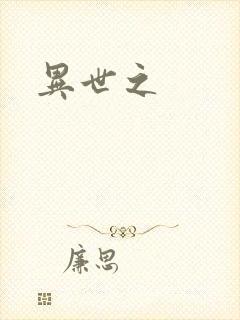 異世之
廉思